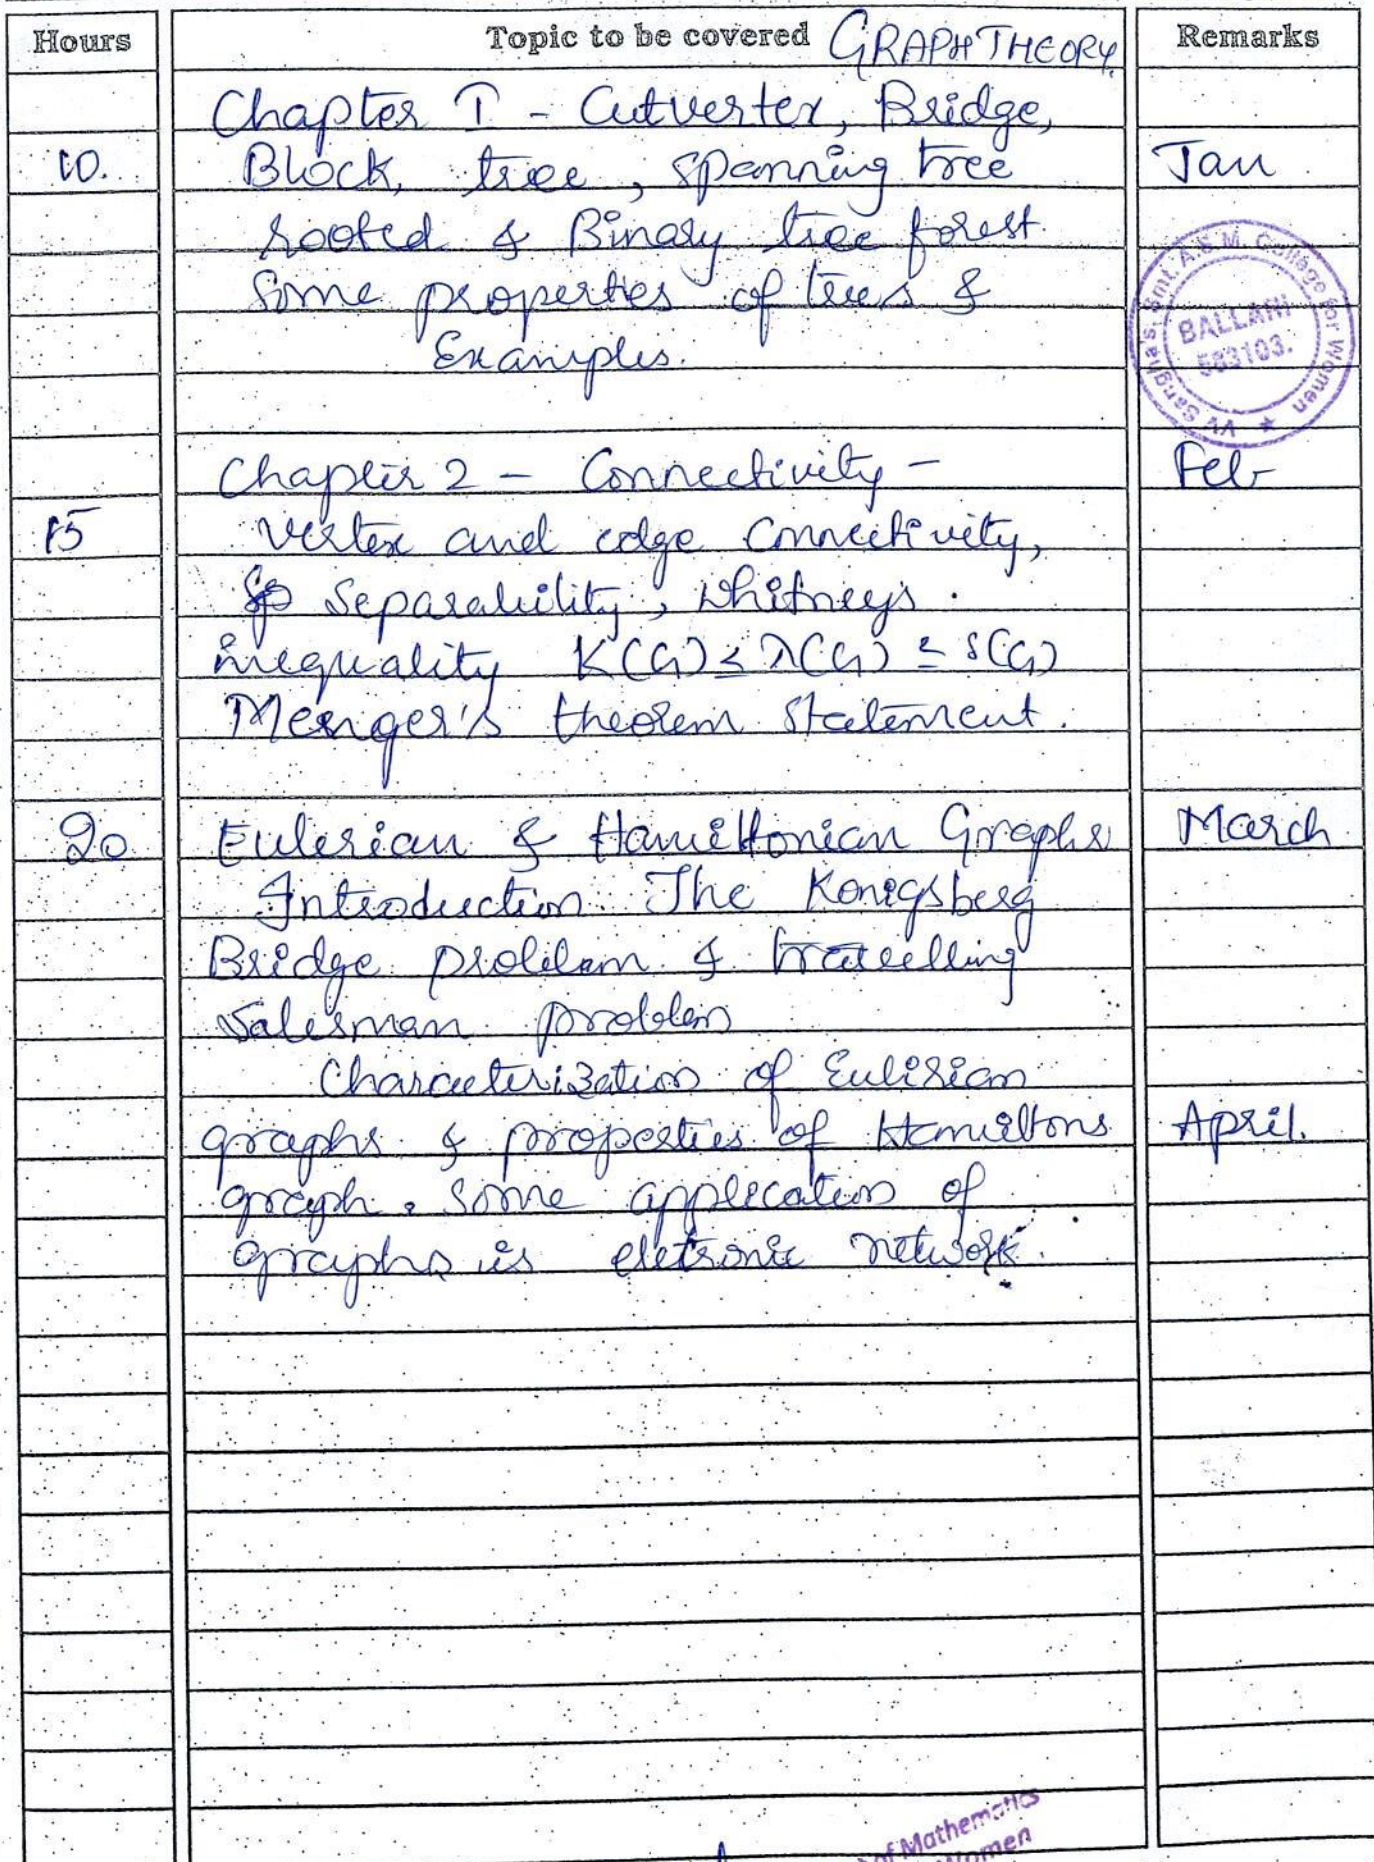 Hours Topic to be covered GRAPH THEORY. Remarks
Chapter I - Cutvertex, Bridge,
10. Block, tree, spanning tree Jan
rooted & Binary tree forest.
Some properties of trees &
Examples.
VV Sangha's Smt. A.S.M. College for Women
BALLARI
583103.
Chapter 2 - Connectivity - Feb
15 Vertex and edge Connectivity,
Separability, Whitneys.
inequality K(G) ≤ λ(G) ≤ δ(G)
Menger's theorem Statement.
20 Eulerian & Hamiltonian Graphs March
Introduction. The Konigsberg
Bridge problem & travelling
Salesman problem
Characterization of Eulerian
graphs & properties of Hamiltons April.
graph. Some application of
graphs is eletronic network.
of Mathematics
Women